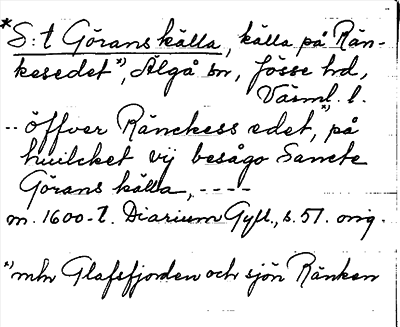 *S:t Görans källa, källa på Rän-
kesedet *), Älgå sn, Jösse hd,
Värml. l.
-- öffver Ränckess edet, *) på
huilcket vij besågo Sancte
Görans källa, ----
m. 1600-t. Diarium Gyll., s. 51. orig.
*) mln Glafsfjorden och sjön Ränken